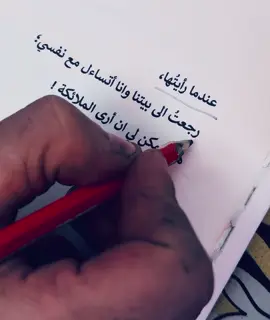 عندما رأيتُها،
رجعتُ الى بيتنا وانا أتساءل مع نفسي؛
يمكن لي ان أرى الملائكة !